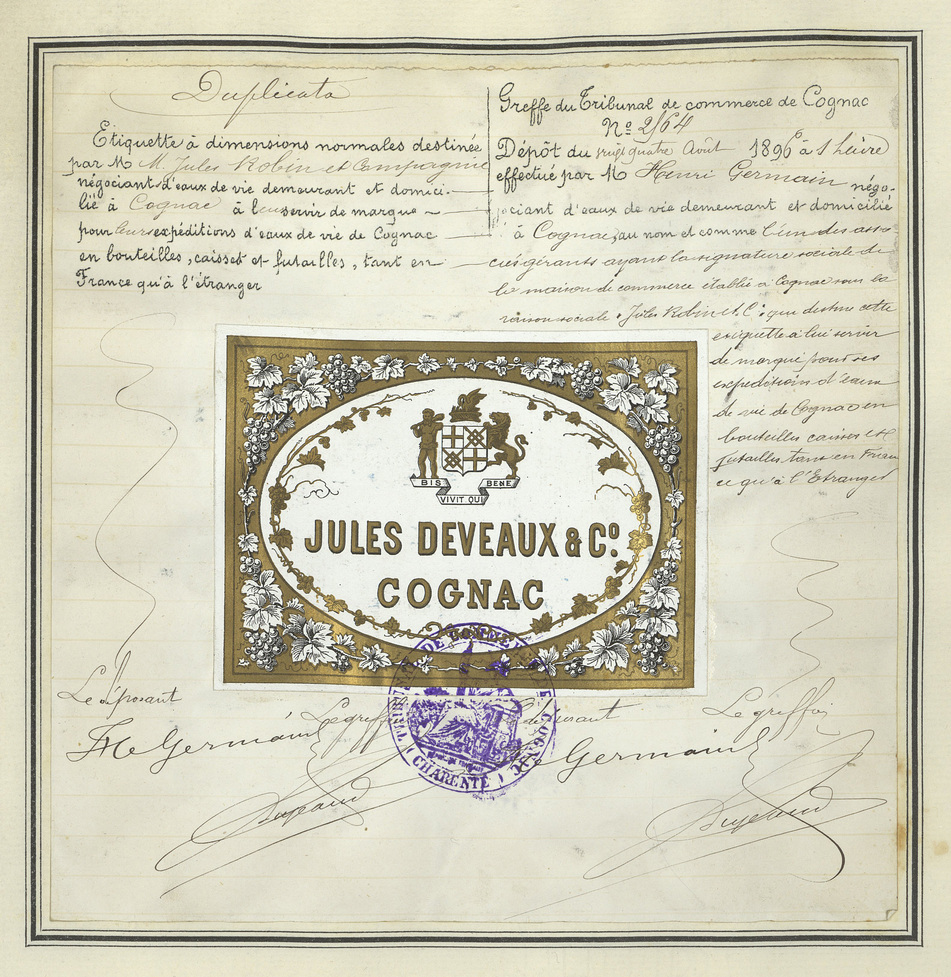 Duplicata
Etiquette à dimensions normales destinée
par M M. Jules Robin et Compagnie
négociant d'eaux de vie demeurant et domici-
lié à Cognac à leur servir de marque
pour leurs expéditions d'eaux de vie de Cognac
en bouteilles, caisses et futailles, tant en
France qu'à l'étranger
Greffe du Tribunal de commerce de Cognac
Nº 2164
Dépôt du vingt quatre Août 1896 à 1 heure
effectué par M Henri Germain négo-
ciant d'eaux de vie demeurant et domicilié
à Cognac, au nom et comme l'un des asso-
ciés gérants ayant la signature sociale de
la maison de commerce établie à Cognac sous la
raison sociale "Jules Robin et Cie" que destine cette
etiquette à lui servir
de marque pour ses
expéditions d'eaux
de vie de Cognac en
bouteilles caisses et
futailles tant en Fran
ce qu'à l'Etranger
BIS VIVIT QUI BENE
JULES DEVEAUX & Cº
COGNAC
TRIBUNAL DE COMMERCE DE COGNAC
(CHARENTE)
Le déposant
Le greffier
Le déposant
Le greffier
H Germain
Germain